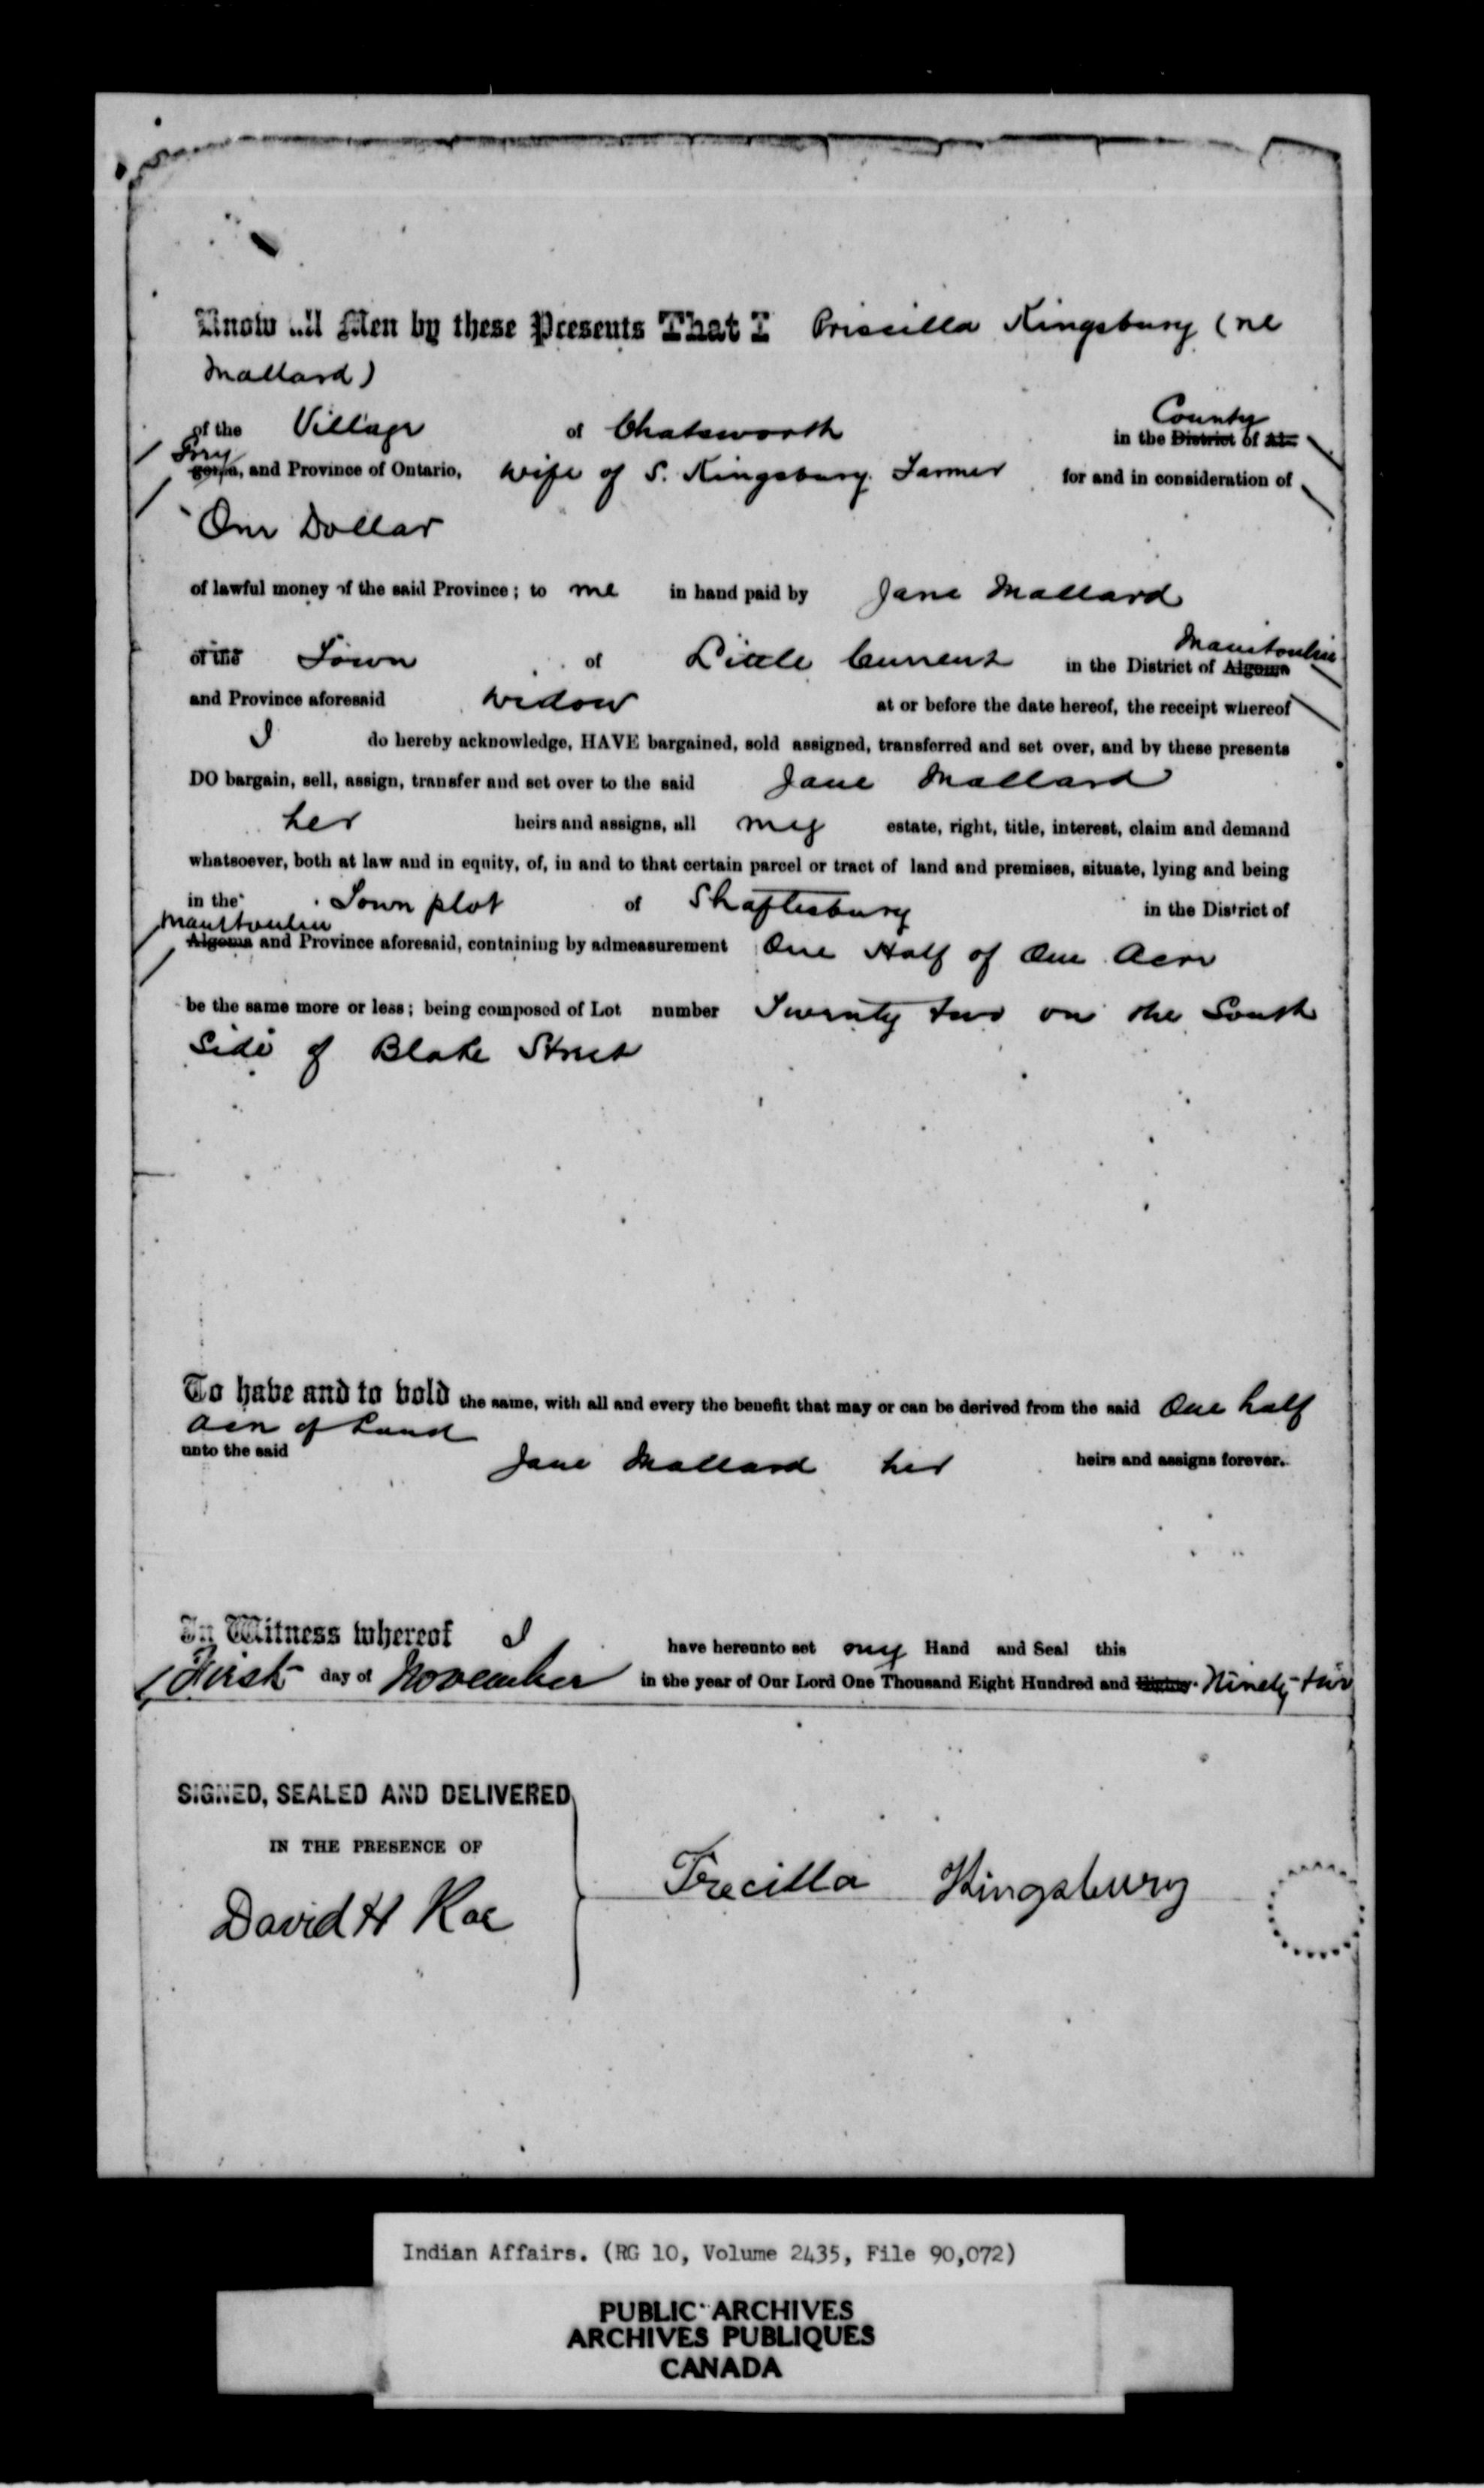 Know all Men by these Presents That I Priscilla Kingsbury (ne
Mallard)
of the Village of Chatsworth in the District of Al- County
goma, and Province of Ontario, wife of S. Kingsbury Farmer for and in consideration of
One Dollar
of lawful money of the said Province; to me in hand paid by Jane Mallard
of the Town of Little Current in the District of Algoma Manitoulin
and Province aforesaid widow at or before the date hereof, the receipt whereof
I do hereby acknowledge, HAVE bargained, sold assigned, transferred and set over, and by these presents
DO bargain, sell, assign, transfer and set over to the said Jane Mallard
her heirs and assigns, all my estate, right, title, interest, claim and demand
whatsoever, both at law and in equity, of, in and to that certain parcel or tract of land and premises, situate, lying and being
in the Town plot of Shaftesbury in the District of
Manitoulin
Algoma and Province aforesaid, containing by admeasurement One Half of One Acre
be the same more or less; being composed of Lot number Twenty two on the South
Side of Blake Street
To have and to hold the same, with all and every the benefit that may or can be derived from the said One half
acre of Land
unto the said Jane Mallard her heirs and assigns forever.
In Witness whereof I have hereunto set my Hand and Seal this
First day of November in the year of Our Lord One Thousand Eight Hundred and Eighty Ninety-two
SIGNED, SEALED AND DELIVERED
IN THE PRESENCE OF
David H Rae
Precilla Kingsbury
Indian Affairs. (RG 10, Volume 2435, File 90,072)
PUBLIC ARCHIVES
ARCHIVES PUBLIQUES
CANADA